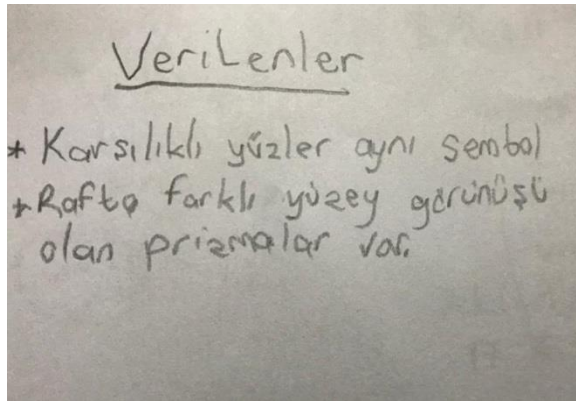 Verilenler
* Karsılıklı yüzler aynı sembol
* Rafta farklı yüzey görünüşü
olan prizmalar var.